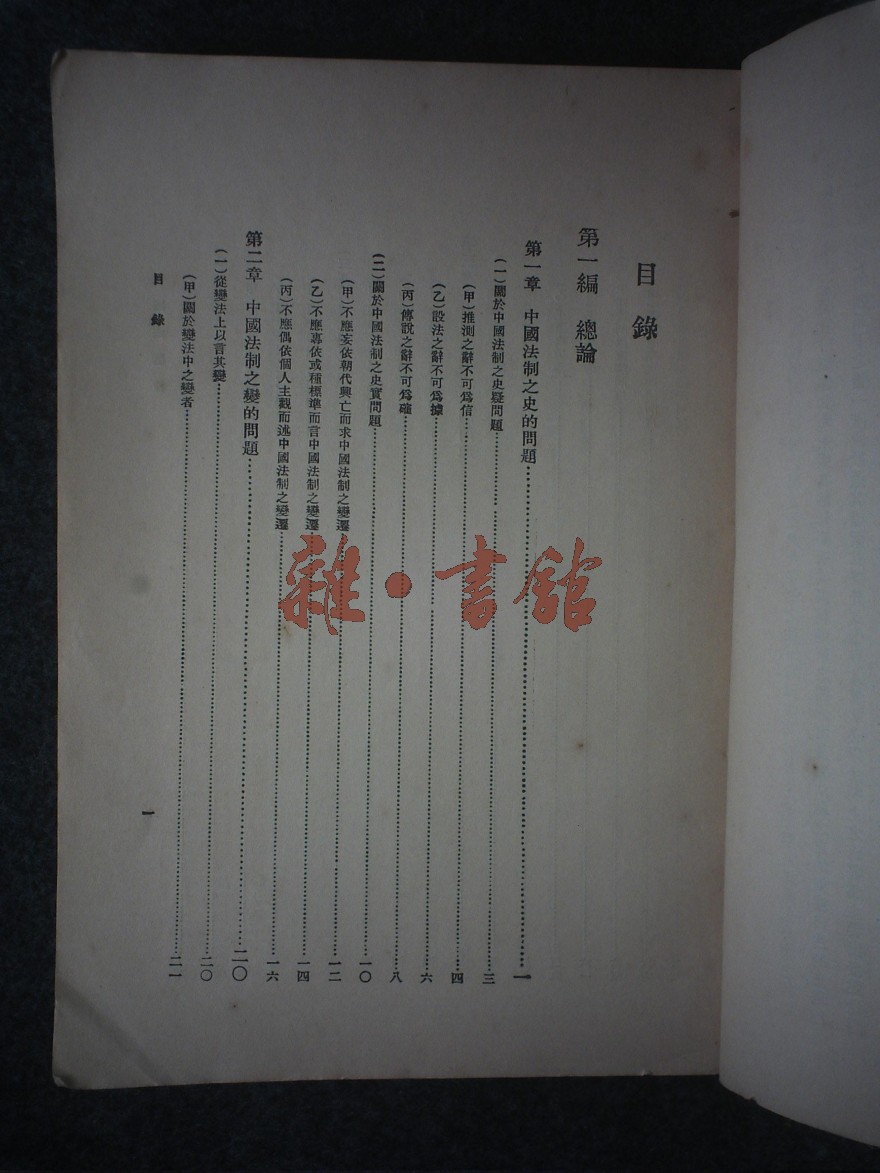 目錄
第一編 總論
第一章 中國法制之史的問題……一
(一)關於中國法制之史疑問題……三
(甲)推測之辭不可爲信……四
(乙)設法之辭不可爲據……六
(丙)傳說之辭不可爲確……八
(二)關於中國法制之史實問題……一〇
(甲)不應妄依朝代興亡而求中國法制之變遷……一二
(乙)不應專依或種標準而言中國法制之變遷……一四
(丙)不應偶依個人主觀而述中國法制之變遷……一六
第二章 中國法制之變的問題……二〇
(一)從變法上以言其變……二〇
(甲)關於變法中之變者……二一
目錄
一
雜·書館